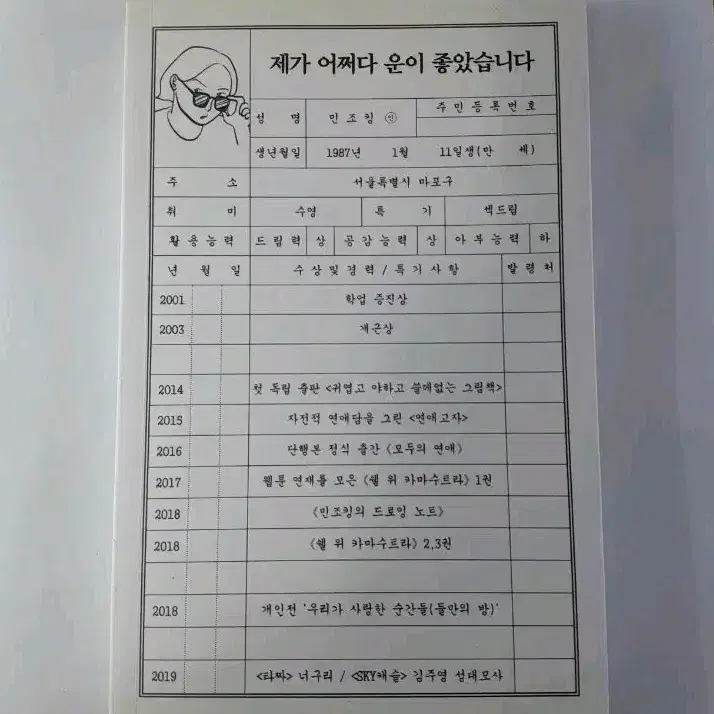 제가 어쩌다 운이 좋았습니다
성 명 민조킹 ㊞ 주 민 등 록 번 호
생년월일 1987년 1월 11일생(만 세)
주 소 서울특별시 마포구
취 미 수영 특 기 섹드립
활 용 능 력 드 립 력 상 공 감 능 력 상 아 부 능 력 하
년 월 일 수 상 및 경 력 / 특 기 사 항 발 령 처
2001 학업 증진상
2003 개근상
2014 첫 독립 출판 <귀엽고 야하고 쓸데없는 그림책>
2015 자전적 연애담을 그린 <연애고자>
2016 단행본 정식 출간 《모두의 연애》
2017 웹툰 연재를 모은 《쉘 위 카마수트라》 1권
2018 《민조킹의 드로잉 노트》
2018 《쉘 위 카마수트라》 2,3권
2018 개인전 '우리가 사랑한 순간들(둘만의 방)'
2019 <타짜> 너구리 / <SKY캐슬> 김주영 성대모사